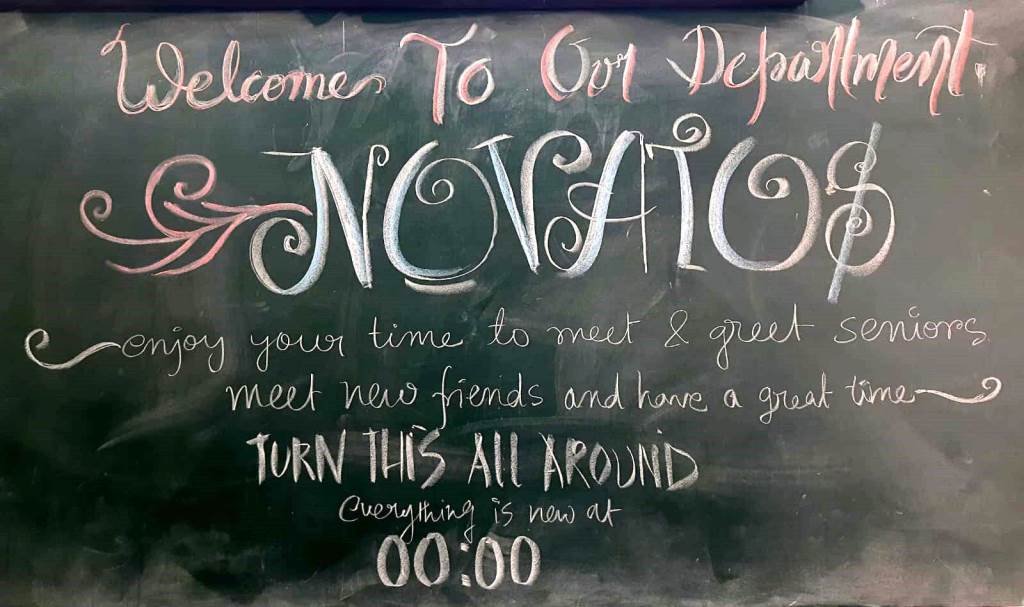 Welcome To Our Department.
NOVATOS
enjoy your time to meet & greet seniors
meet new friends and have a great time
TURN THIS All AROUND
everything is new at
00:00